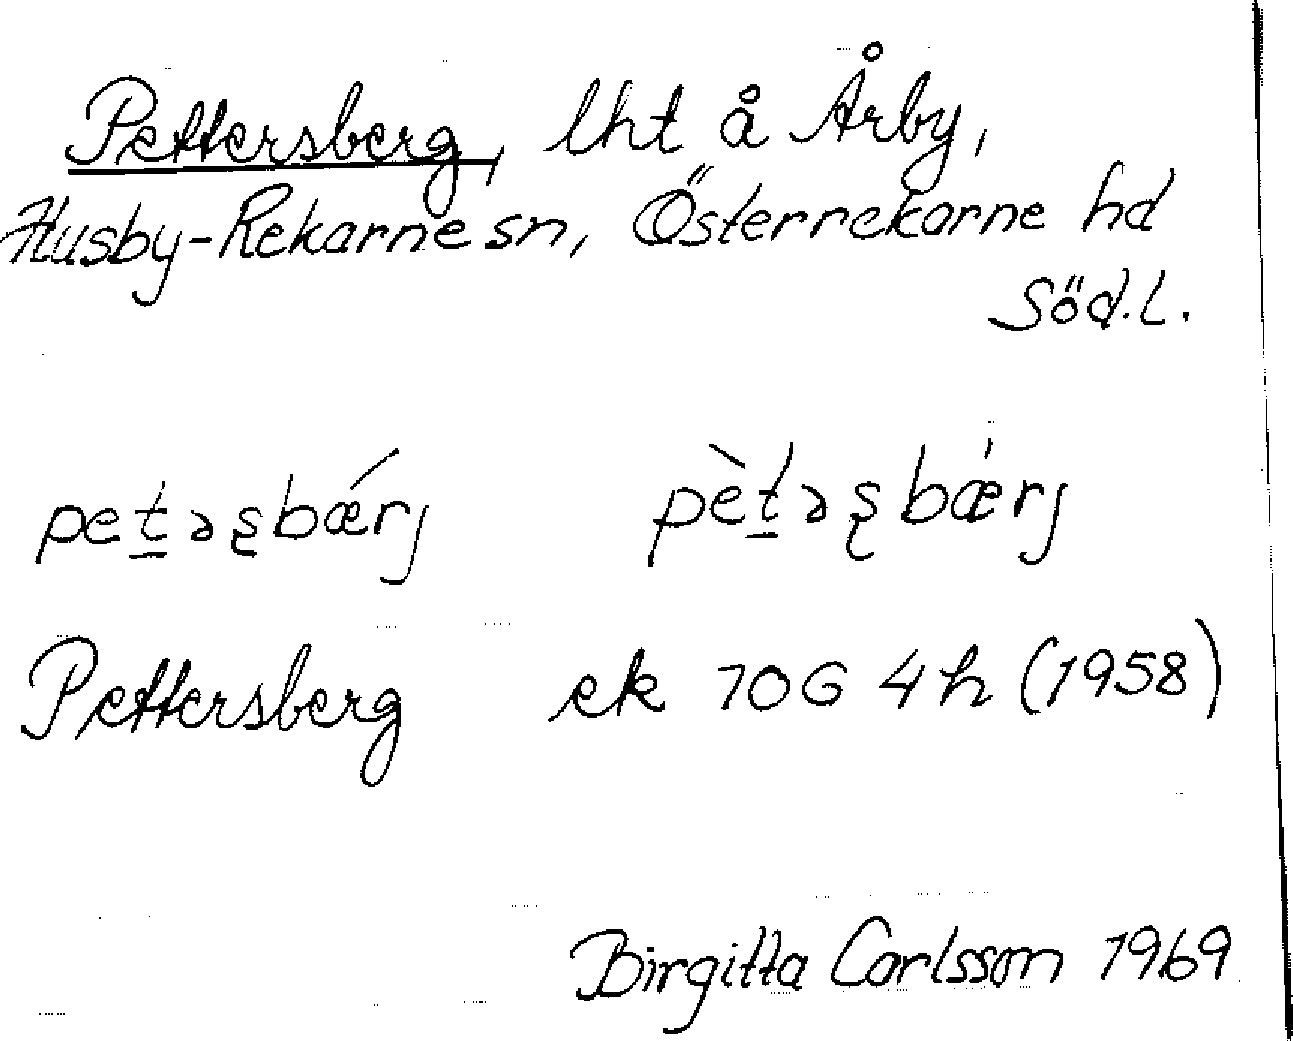 Pettersberg, lht å Årby,
Husby-Rekarne sn, Österrekarne hd
Söd.l.
pet̲əʂbǽrj pèt̲əʂbæ̍rj
Pettersberg ek 10G 4h (1958)
Birgitta Carlsson 1969